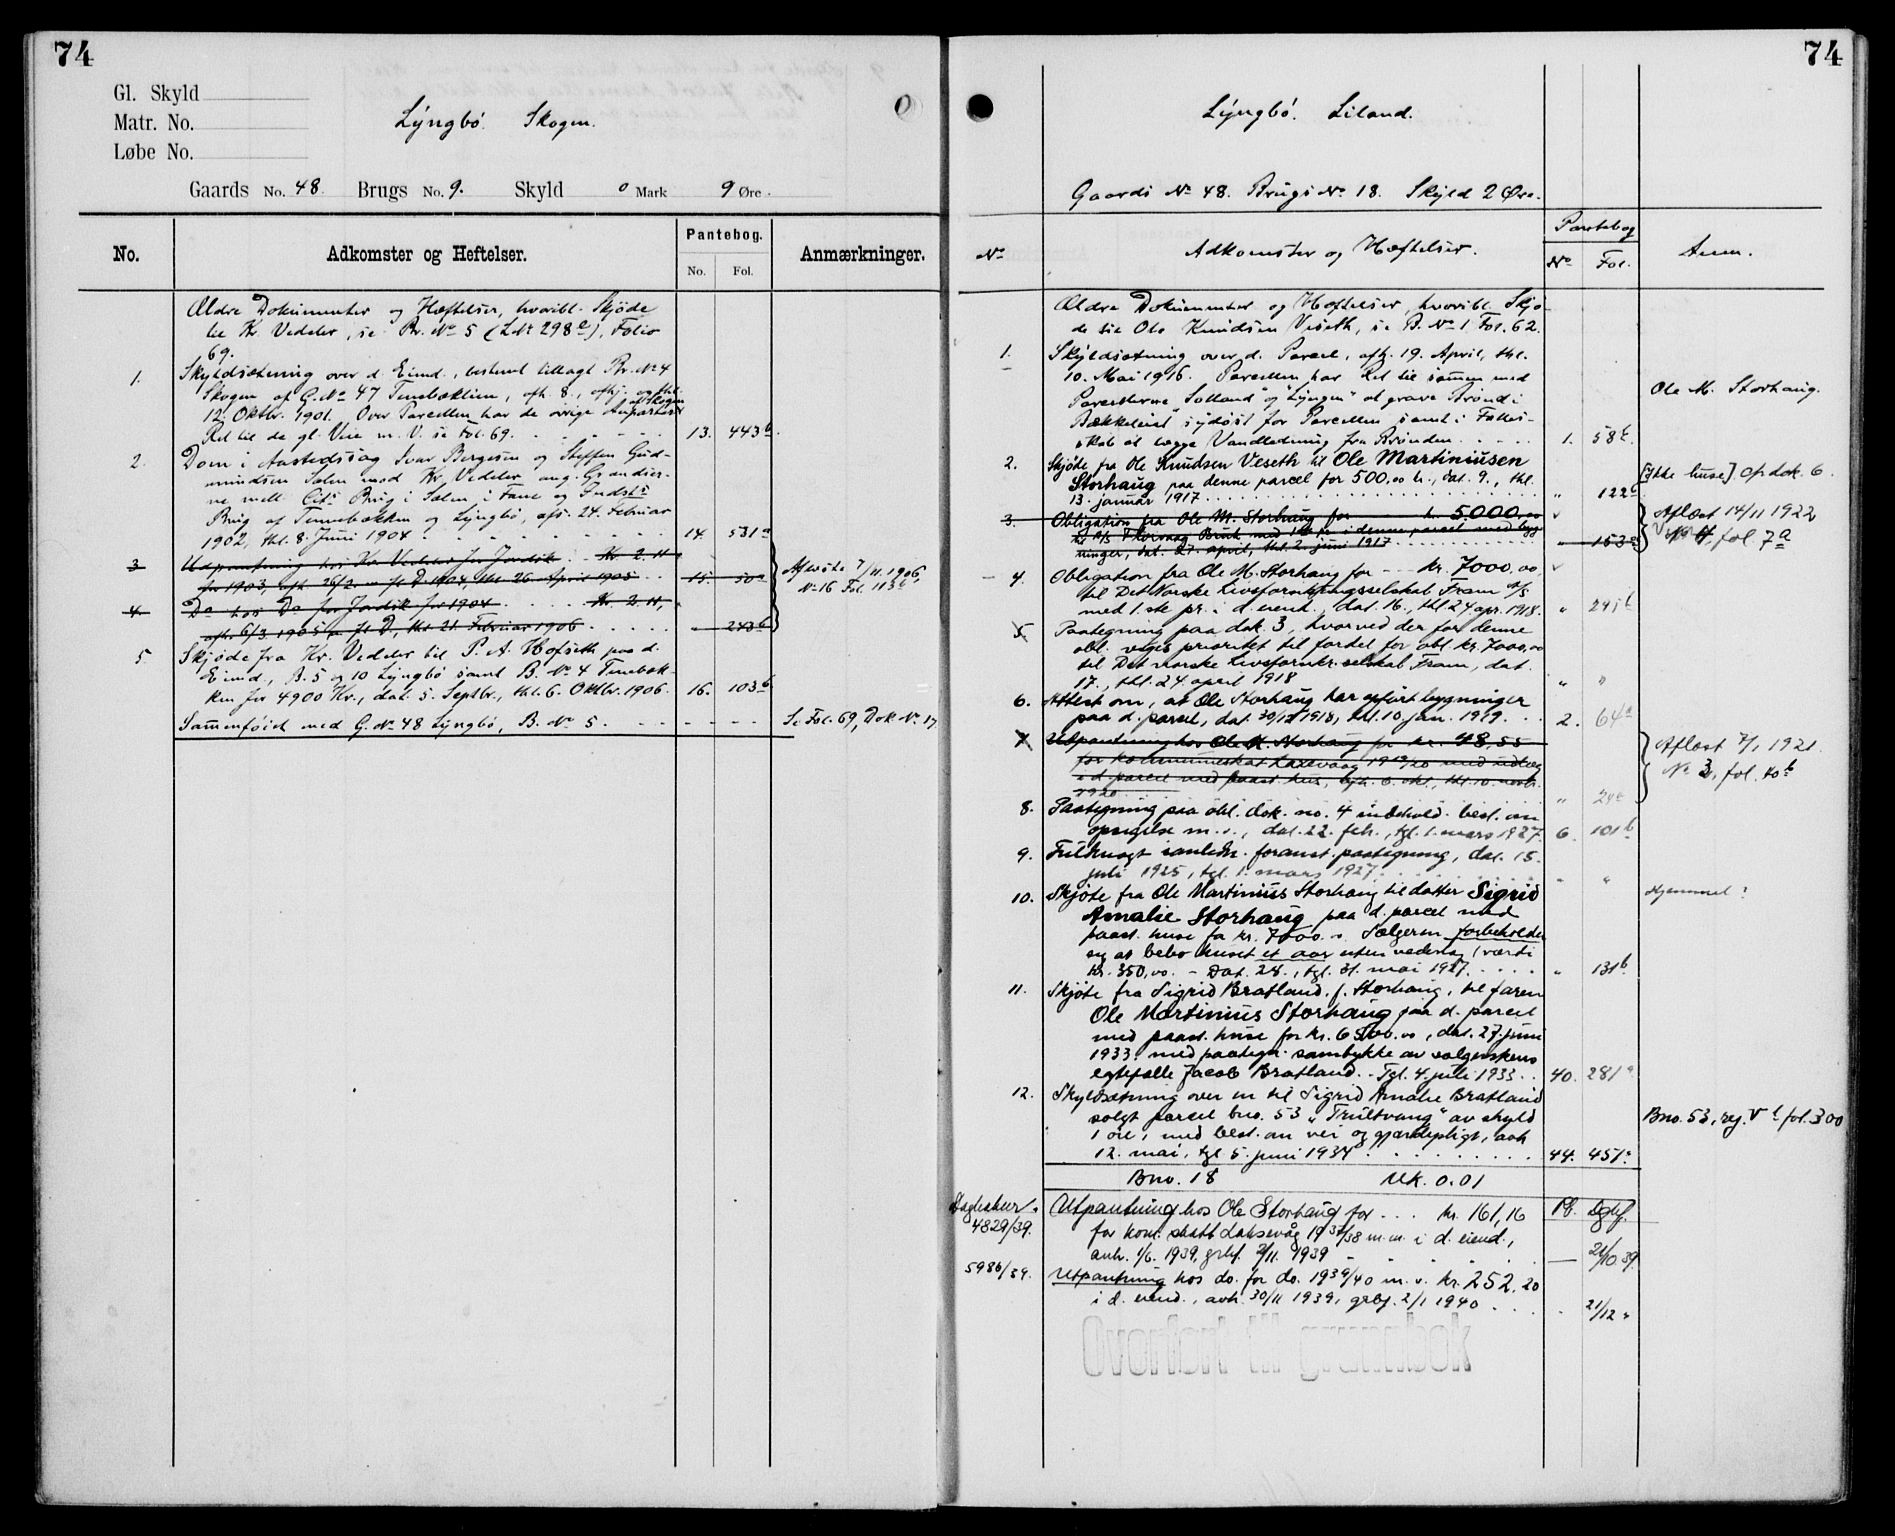 74
Gl. Skyld
Matr. No.
Løbe No.
Lyngbø. Skogen.
0
Gaards No. 48. Brugs No. 9. Skyld 0 Mark 9 Øre.
No.
Adkomster og Heftelser.
Pantebog.
No. Fol.
Anmærkninger.
Ældre Dokumenter og Hæftelser, hvoribl. Skjøde
til Kr. Vedeler, se Br. No 5 (L.Nr 298 a), Folio
69.
1. Skyldsætning over d. Eiend., bestemt tillagt Br. No 4
Skogen af G. No 47 Tennebekken, afh. 8., afhj. og thl.
12. Oktbr. 1901. Over Parcellen har de øvrige Anparter af Skogen
Ret til de gl. Veie m. V. se Fol. 69. 13. 443 b.
2. Dom i Aastedssag Ivar Bergesen og Steffen Gud-
mundsen Sælen mod Kr. Vedeler ang. Grændser-
ne mell. Cit. Brug i Sælen i Fane og Indst.
Brug af Tennebekken og Lyngbø, afs. 24. Februar
1902, thl. 8. Juni 1904 14. 531 a
3 Udpantning hos Kr. Vedeler for Jordsk. Kr. 2.11
for 1903, afh. 26/2 1904 thl. 26. April 1905 15. 50 a
Afløste 7/11. 1906,
No 16 Fol. 113 b
4. Do hos Do for Jordsk. for 1904 Kr. 2.11,
afh. 6/3 1905, thl. 21. Februar 1906 " 243 b
5 Skjøde fra Kr. Vedeler til P. A. Hofseth paa d.
Eiend., B. 5 og 10 Lyngbø samt B. No 4 Tennebek-
ken for 4900 Kr., dat. 5. Septbr., thl. 6. Oktbr. 1906. 16. 103 b
Sammenføiet med G. No 48 Lyngbø, B. No 5. Se Fol. 69, Dok No. 17
74
Lyngbø. Liland.
Gaards No 48. Brugs No 18. Skyld 2 Øre.
No
Adkomster og Hæftelser.
Pantebog
No Fol.
Anm.
Ældre Dokumenter og Hæftelser, hvoribl. Skjø-
de til Ole Knudsen Veseth, se B. No 1 Fol. 62.
1. Skyldsætning over d. Parcel, afh. 19. April, thl.
10. Mai 1916. Parcellen har Ret til sammen med
Parcellerne "Solland" og "Lyngen" at grave Brønd i
sydøst for Parcellen samt i Fælles-
skab at lægge Vandledning fra Brønden. 1. 58 b.
Ole M. Storhaug.
2. Skjøde fra Ole Knudsen Veseth til Ole Martiniusen
Storhaug paa denne parcel for 500,00 kr., dat. 9., thl.
13. januar 1917 " 122 a
[Ikke huse] cfr dok. 6.
3. Obligation fra Ole M. Storhaug for kr. 5000,00
til A/S Bruk med i denne parcel med byg-
ninger, dat. 27. april, thl. 2. juni 1917 " 153 a
Aflæst 14/11 1922
No 4 fol 7 a
4. Obligation fra Ole M. Storhaug for kr. 7000,00,
til Det Norske Livsforsikringsselskab Fram A/S
med 1. ste pr. i d. eiend., dat. 16., thl. 24 apr. 1918. " 241 b
5 Paategning paa dok. 3, hvorved der for denne
obl. viges prioritet til fordel for obl. kr. 7000,00
til Det norske Livsforsikr.selskab Fram, dat.
17., thl. 24. april 1918 " "
6. Attest om, at Ole Storhaug har opført bygninger
paa d. parcel, dat. 30/12 1918, thl. 10. jan. 1919. 2. 64 a
7. Utpantning hos Ole M. Storhaug for kr. 48,55
for kommuneskat Laxevaag 1919/20 med utlæg
i d. parcel med paast. hus, afh. 6. okt., thl. 10. novbr.
1920 " 24 a
Aflæst 7/1 1921.
No 3, fol. 40 b
8. Paategning paa obl. dok. no. 4 indehold. best. om
opsigelse m. v., dat. 22 feb., tgl. 1. mars 1927. 6. 101 b
9. Fuldmagt i anledn. foranst. paategning, dat. 15.
juli 1925, tgl. 1. mars 1927. " "
10. Skjøte fra Ole Martinius Storhaug til datter Sigrid
Amalie Storhaug paa d. parcel med
paast. huse for kr. 7000. Sælgeren forbeholder
sig at bebo huset et aar uten vederlag (værdi
kr. 350,00. - Dat. 28., tgl. 31. mai 1927. " 131 b
Hjemmel:
11. Skjøte fra Sigrid Bratland, f. Storhaug, til faren
Ole Martinius Storhaug paa d. parcel
med paast. huse for kr. 6500.00, dat. 27. juni
1933. med paategn. samtykke av selgerskens
egtefælle Jacob Bratland. - Tgl. 4. juli 1933. 40. 281 a
12. Skyldsætning over en til Sigrid Amalie Bratland
solgt parcel bno. 53 "Trultvang" av skyld
1 øre, med best. om vei og gjærdepligt, avh
12. mai, tgl 5. juni 1934 44. 451 a
Bno. 53, reg. V fol. 300
Bno. 18 Mk. 0.01
Pb. Dgbf.
Dagboknr.
4829/39. Utpantning hos Ole Storhaug for kr. 161,16
for kom. skatt Laksevåg 1937/38 m. m. i d. eiend.,
avh. 1/6. 1939, grbf. 2/11. 1939 — 21/10 39.
5986/39. Utpantning hos do. for do. 1939/40 m. v. kr. 252.20
i d. eiend., avh. 30/11 1939, grbf. 2/1 1940 21/12 "
Overført til grunnbok